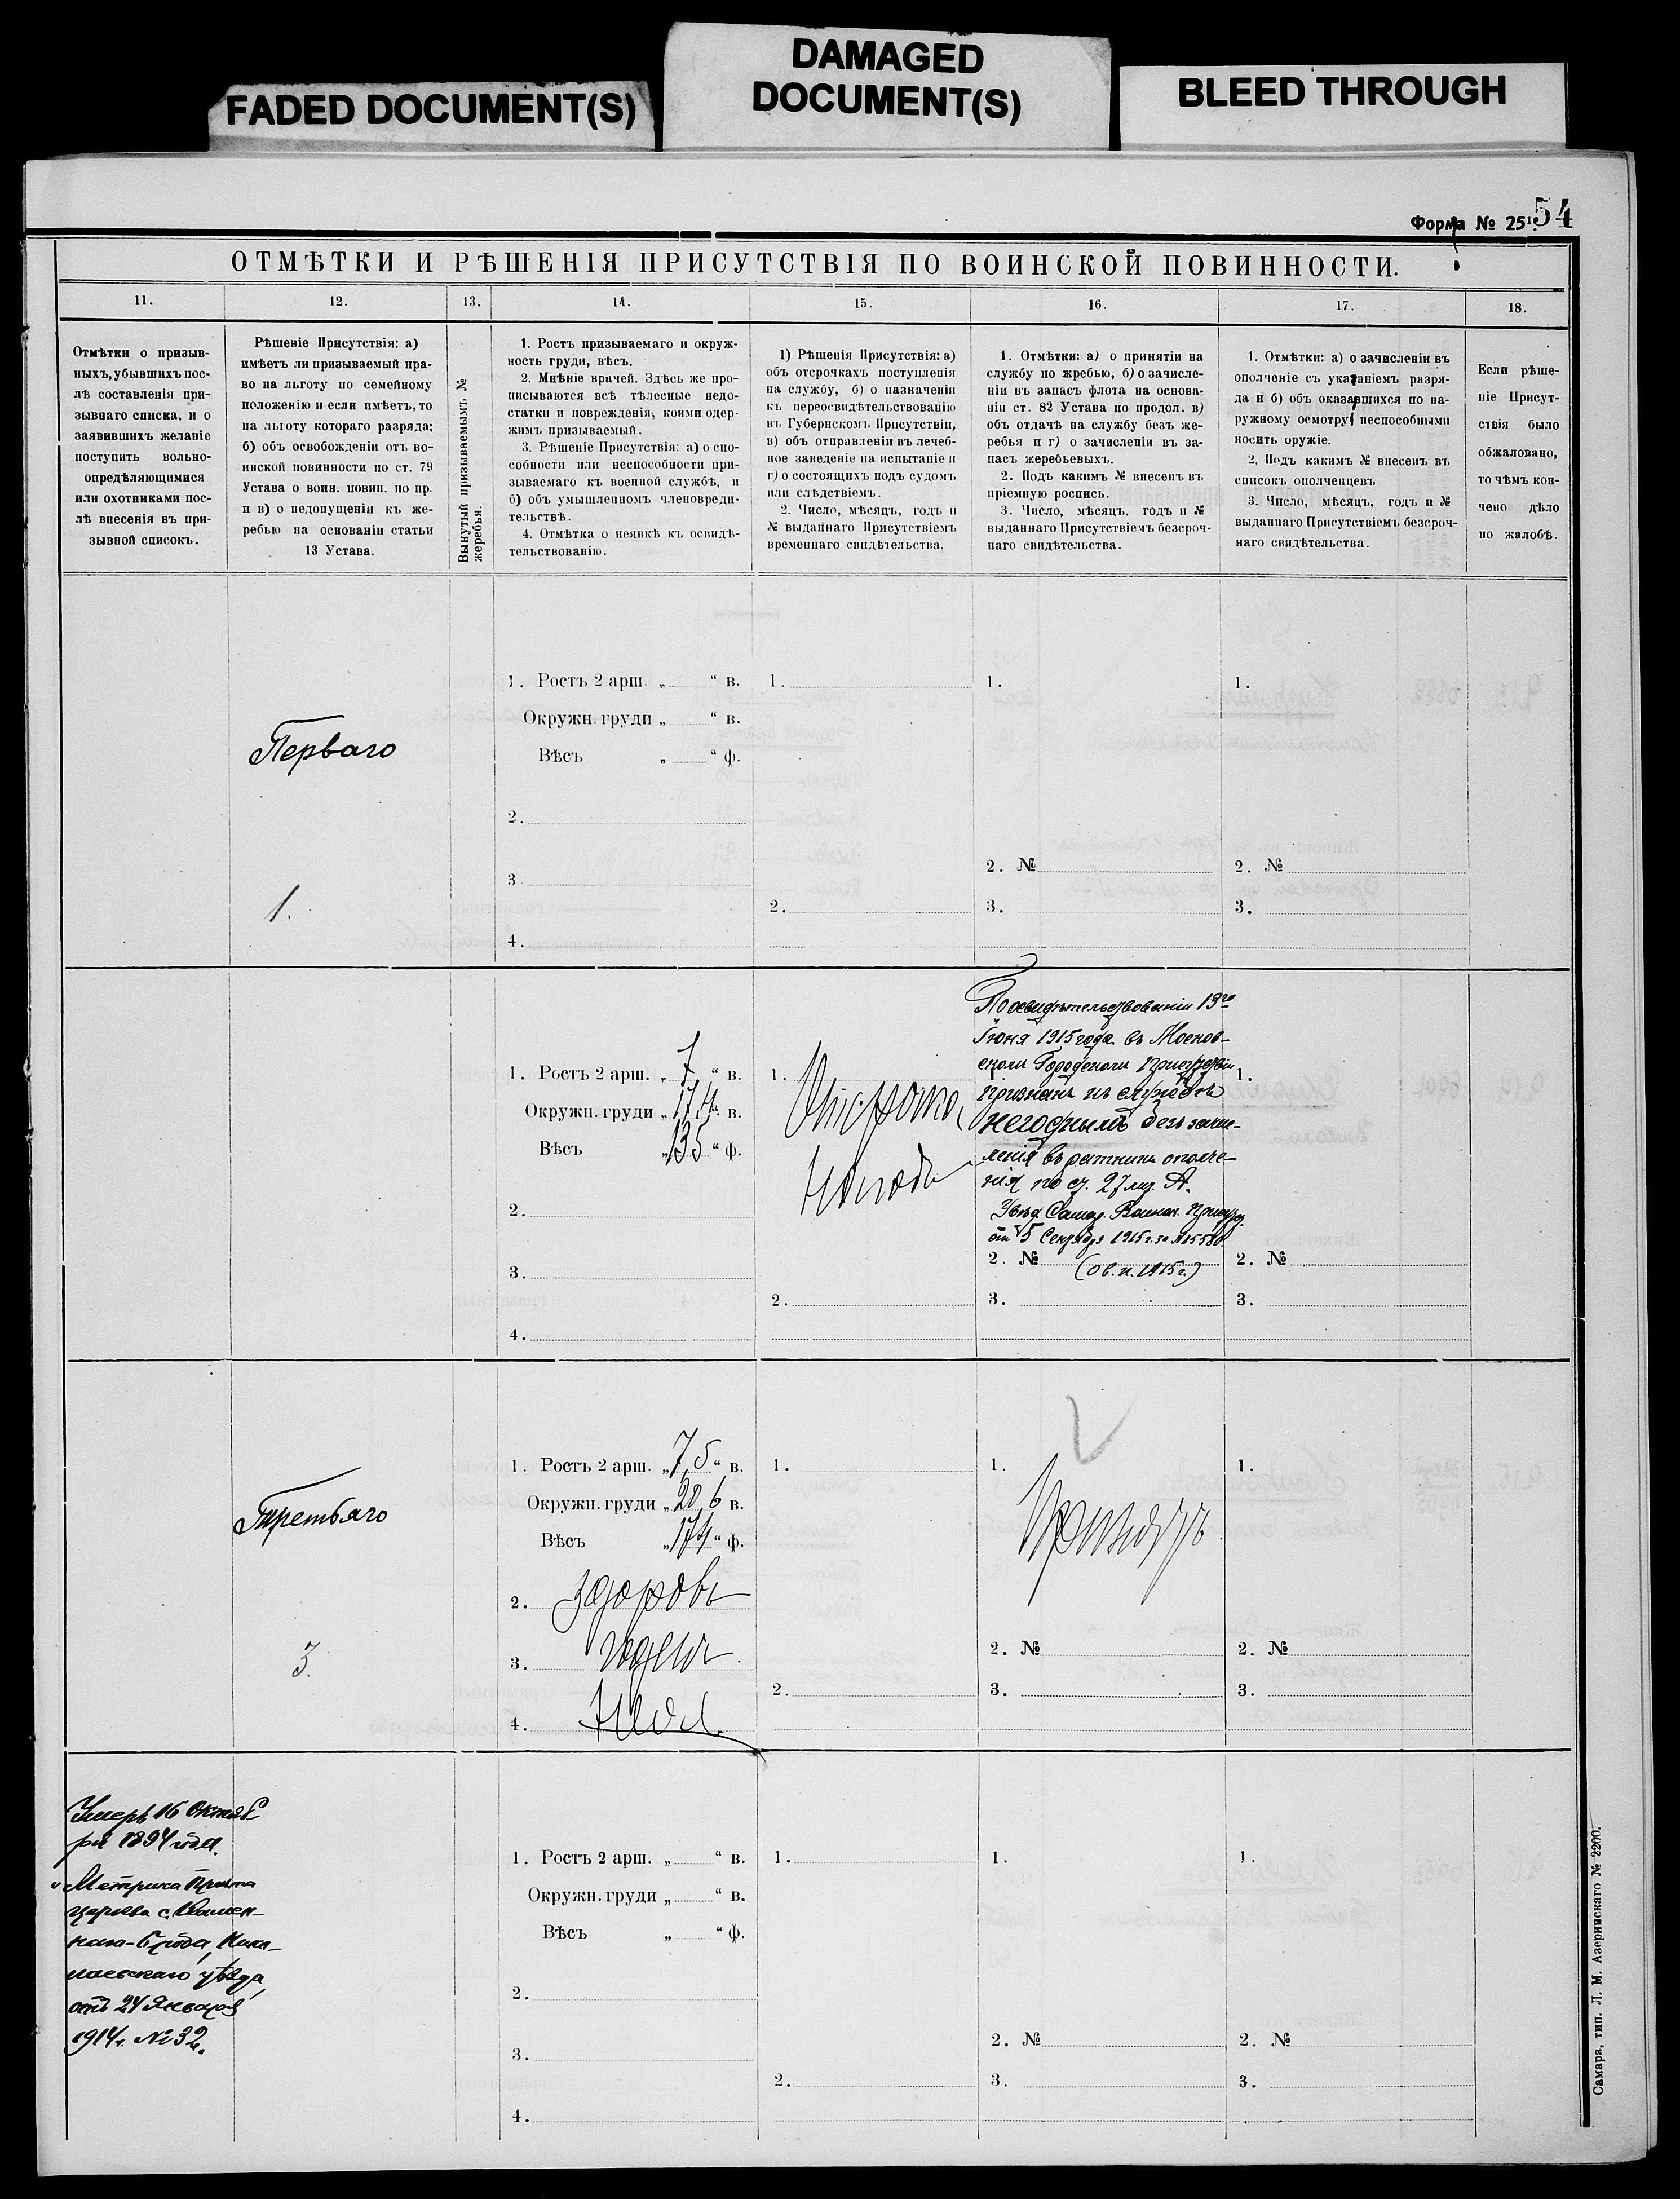 FADED DOCUMENT(S)
DAMAGED
DOCUMENT(S)
BLEED THROUGH
Форма № 25¹.
54
ОТМѢТКИ И РѢШЕНІЯ ПРИСУТСТВІЯ ПО ВОИНСКОЙ ПОВИННОСТИ.
11.
12.
13.
14.
15.
16.
17.
18.
Отмѣтки о призыв-
ныхъ, убывшихъ пос-
лѣ составленія при-
зывнаго списка, и о
заявившихъ желаніе
поступить вольно-
опредѣляющимися
или охотниками пос-
лѣ внесенія въ при-
зывной списокъ.
Рѣшеніе Присутствія: а)
имѣетъ ли призываемый пра-
во на льготу по семейному
положенію и если имѣетъ, то
на льготу котораго разряда;
б) объ освобожденіи отъ во-
инской повинности по ст. 79
Устава о воин. повин. по пр.
и в) о недопущеніи къ же-
ребью на основаніи статьи
13 Устава.
Вынутый призываемымъ №
жеребья.
1. Ростъ призываемаго и окруж-
ность груди, вѣсъ.
2. Мнѣніе врачей. Здѣсь же про-
писываются всѣ тѣлесные недо-
статки и поврежденія, коими одер-
жимъ призываемый.
3. Рѣшеніе Присутствія: а) о спо-
собности или неспособности при-
зываемаго къ военной службѣ, и
б) объ умышленномъ членовреди-
тельствѣ.
4. Отмѣтка о неявкѣ къ освидѣ-
тельствованію.
1) Рѣшенія Присутствія: а)
объ отсрочкахъ поступленія
на службу, б) о назначеніи
къ переосвидѣтельствованію
въ Губернскомъ Присутствіи,
в) объ отправленіи въ лечеб-
ное заведеніе на испытаніе и
г) о состоящихъ подъ судомъ
или слѣдствіемъ.
2. Число, мѣсяцъ, годъ и
№ выданнаго Присутствіемъ
временнаго свидѣтельства.
1. Отмѣтки: а) о принятіи на
службу по жребью, б) о зачисле-
ніи въ запасъ флота на основа-
ніи ст. 82 Устава по продол. в)
объ отдачѣ на службу безъ же-
ребья и г) о зачисленіи въ за-
пасъ жеребьевыхъ.
2. Подъ какимъ № внесенъ въ
пріемную роспись.
3. Число, мѣсяцъ, годъ и №
выданнаго Присутствіемъ безсроч-
наго свидѣтельства.
1. Отмѣтки: а) о зачисленіи въ
ополченіе съ указаніемъ разря-
да и б) объ оказавшихся по на-
ружному осмотру неспособными
носить оружіе.
2. Подъ какимъ № внесенъ въ
списокъ ополченцевъ
3. Число, мѣсяцъ, годъ и №
выданнаго Присутствіемъ безсроч-
наго свидѣтельства.
Если рѣше-
ніе Присут-
ствія было
обжаловано,
то чѣмъ кон-
чено дѣло
по жалобѣ.
Перваго
1.
1. Ростъ 2 арш. „ “ в.
Окружн. груди „ “ в.
Вѣсъ „ “ ф.
2.
3
4.
1.
2.
1.
2. №
3.
1.
2. №
3.
1. Ростъ 2 арш. „ 7 “ в.
Окружн. груди „ 17,4 в.
Вѣсъ „ 135 “ ф.
2.
3.
4.
1. Отсрочка
2.
По освидѣтельствованіи 13го
Іюня 1915 года въ Москов-
скомъ Городскомъ Присутствіи
признанъ къ службѣ
негоднымъ безъ зачис-
ленія въ ратники ополче-
нія по ст. 27 лит. А.
Увѣд. Самар. Воинск. Присут.
отъ 5 Сентября 1915 г. за № 5580
2. №
(о в. п. 1915 г.)
3.
1.
2. №
3.
Третьяго
3.
1. Ростъ 2 арш. „ 7,5 “ в.
Окружн. груди „ 20,6 в.
Вѣсъ „ 174 “ ф.
2. здоровъ
3. годенъ
4.
1.
2.
1. Принятъ
2. №
3.
1.
2. №
3.
Умеръ 16 Октяб
ря 1894 года.
Метрика Причта
церкви с. Камен-
наго-Брода, Нико-
лаевскаго уѣзда,
отъ 24 Января
1914 г. № 32.
1. Ростъ 2 арш. „ “ в.
Окружн. груди „ “ в.
Вѣсъ „ “ ф.
2.
3.
4.
1.
2.
1.
2. №
3.
1.
2. №
3.
Самара, тип. Л. М. Азеринскаго № 2200.